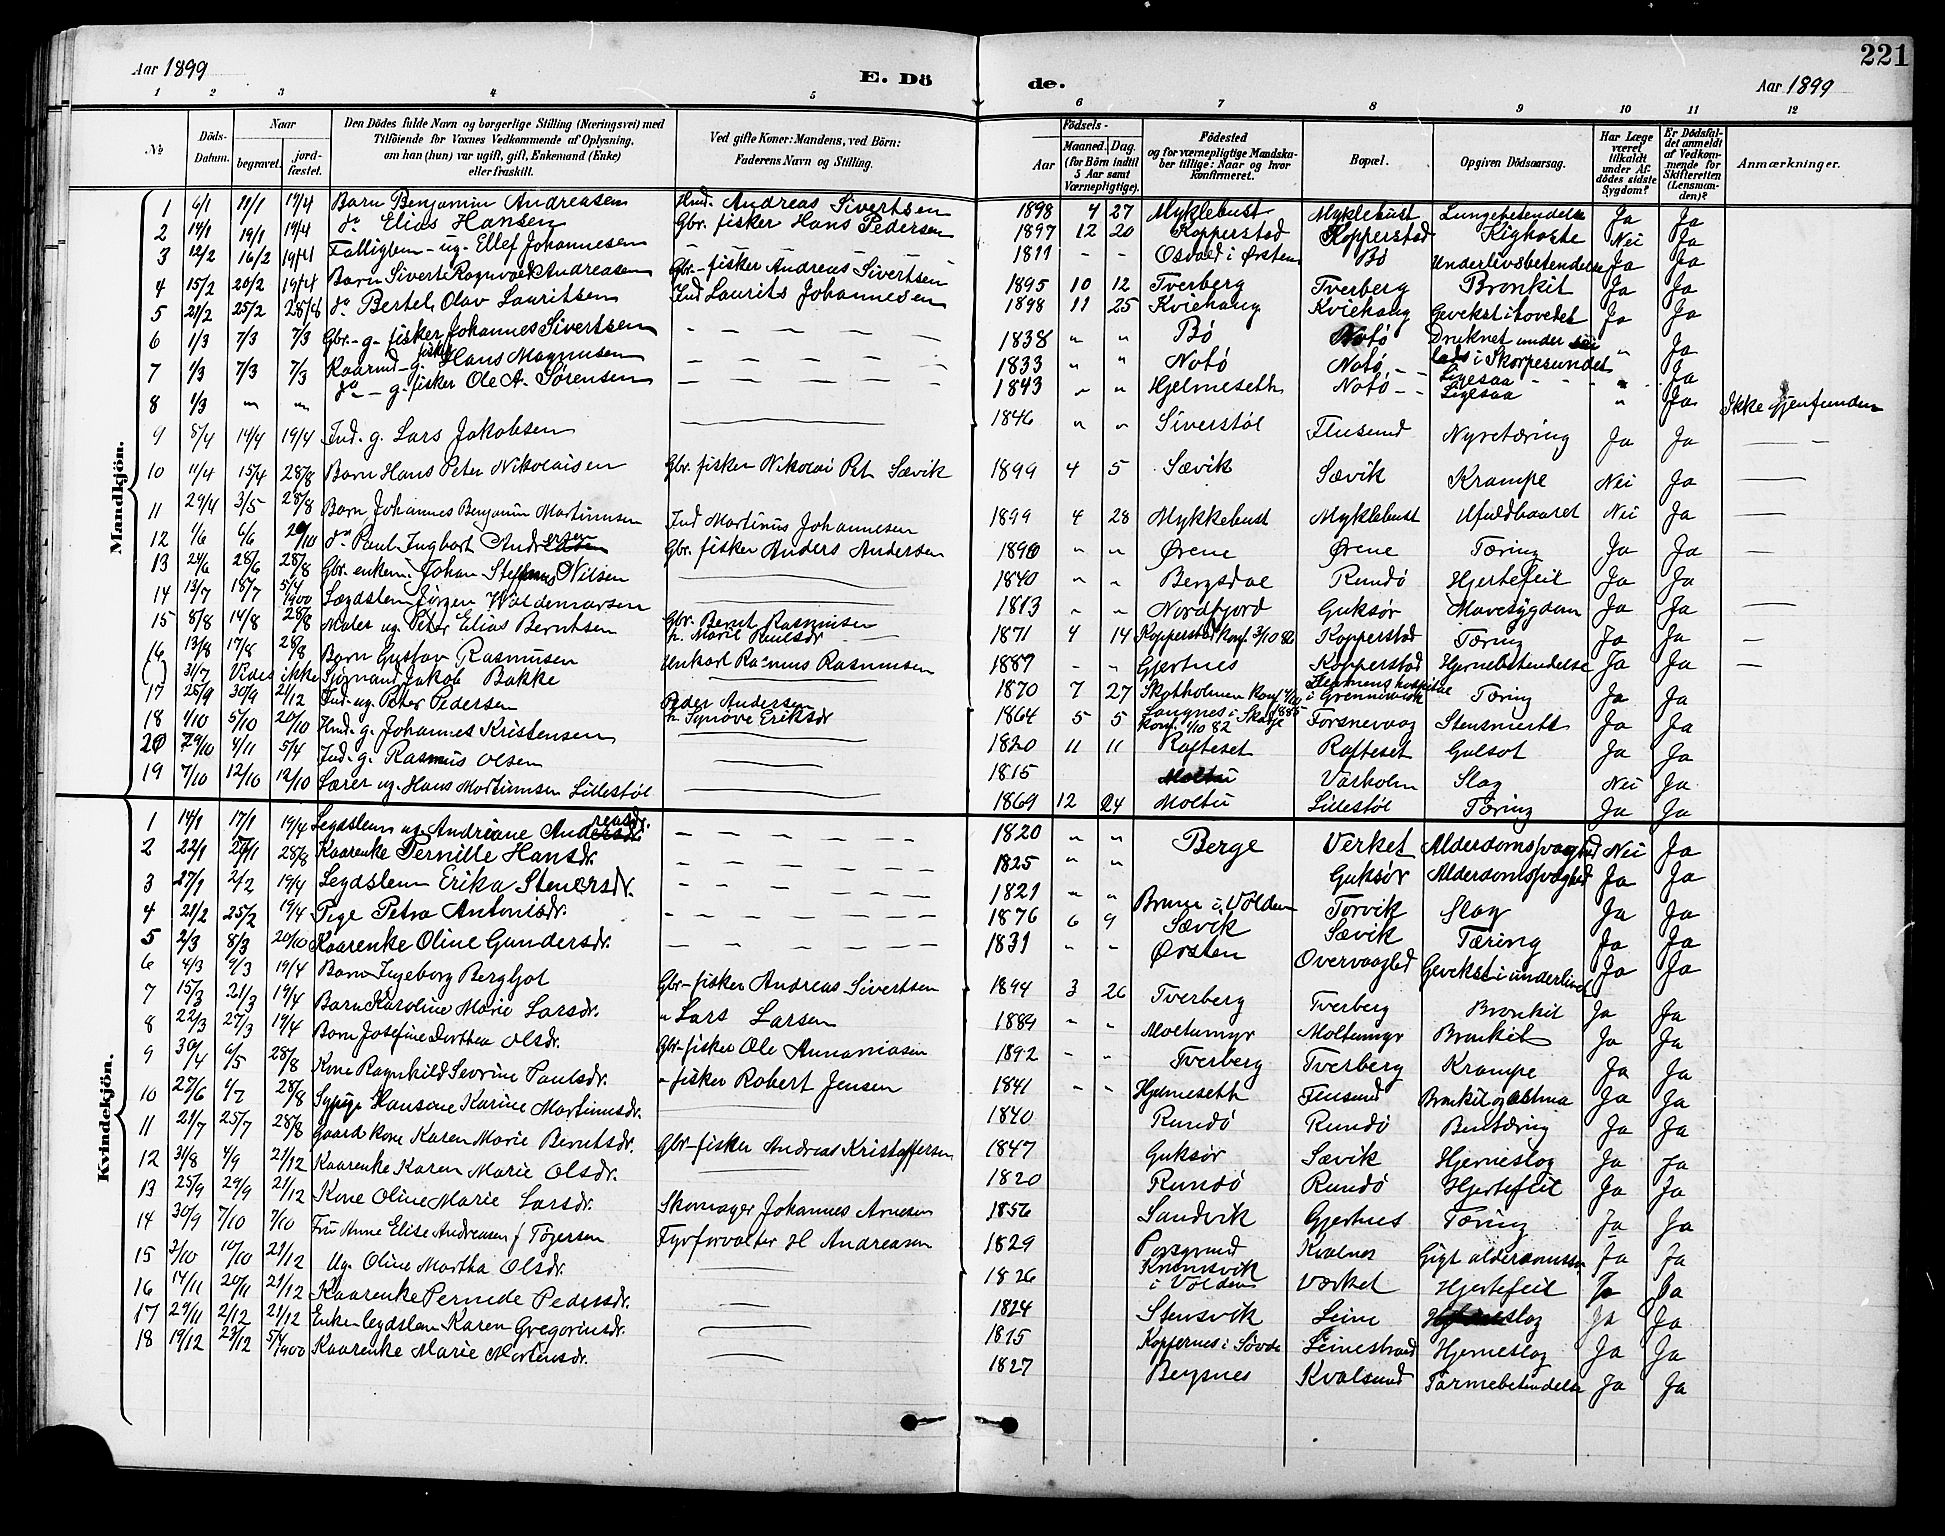 221
Aar 1899 E. Dö de. Aar 1899
1 2 3 4 5 6 7 8 9 10 11 12
№ Döds-Datum. Naar begravet. jord-fæstet. Den Dödes fulde Navn og borgerlige Stilling (Næringsvei) med Tilföiende for Voxnes Vedkommende af Oplysning, om han (hun) var ugift, gift, Enkemand (Enke) eller fraskilt. Ved gifte Koner: Mandens, ved Börn: Faderens Navn og Stilling. Födsels- Aar Maaned. Dag. (for Börn indtil 5 Aar samt Værnepligtige). Födested og for værnepligtige Mandskaber tillige: Naar og hvor konfirmeret. Bopæl. Opgiven Dödsaarsag. Har Læge været tilkaldt under Afdödes sidste Sygdom? Er Dödsfaldet anmeldt af Vedkommende for Skifteretten (Lensmanden)? Anmærkninger.
Mandkjön.
1 6/1 11/1 19/4 Barn Benjamin Andreasen Hmd. Andreas Sivertsen 1898 4 27 Myklebust Myklebust Lungebetendelse Ja Ja
2 14/1 19/1 19/4 do Elias Hansen Gbr. fisker Hans Pedersen 1897 12 20 Kopperstad Kopperstad Kighoste Nei Ja
3 12/2 16/2 19/4 Fattiglem - ug. Ellef Johannesen - - - 1811 - - Osvold i Ørsten Bø Underlivsbetendelse Ja Ja
4 15/2 20/2 19/4 Barn Sivert Ragnvald Andreasen Gbr-fisker Andreas Sivertsen 1895 10 12 Tverberg Tverberg Bronkit Ja Ja
5 21/2 25/2 28/8 do Bertel Olav Lauritsen Ind Laurits Johannesen 1898 11 25 Kviehaug Kviehaug Gevekst i hovedet Ja Ja
6 1/3 7/3 7/3 Gbr-g-fisker Johannes Sivertsen - - - - 1838 " " Bø Notø Druknet under sei " Ja
7 1/3 7/3 7/3 Kaarmd-g. fisker Hans Magnusen - - - - 1833 " " Notø Notø - - lads i Skorpesundet Ligesaa " Ja
8 1/3 " " do - g. fisker Ole A. Sørensen - - - - 1843 " " Hjelmeseth Notø - - Ligesaa " Ja Ikke gjenfunden
9 5/4 14/4 19/4 Ind. g. Lars Jakobsen 1846 " " Siverstøl Flusund Nyretæring Ja Ja
10 11/4 15/4 28/8 Barn Hans Peter Nikolaisen Gbr. fisker Nikolai Pet. Sævik 1899 4 5 Sævik Sævik Krampe Nei Ja
11 29/4 3/5 28/8 Barn Johannes Benjamin Martinusen Ind Martinus Johannesen 1899 4 28 Mykkebust Myklebust Ufuldbaaret Nei Ja
12 1/6 6/6 20/10 do Paul Ingbart Andersen Gbr. fisker Anders Andersen 1890 " " Ørene Ørene Tæring Ja Ja
13 24/6 28/6 28/8 Gbr. enkem. Johan Steffanus Nilsen 1840 " " Bergsdal Rundø Hjertefeil Ja Ja
14 13/7 18/7 5/4 1900 Lægdslem Jørgen Woldemarsen 1813 " " Nordfjord Guksør Mavesygdom Ja Ja
15 8/8 14/8 28/8 Maler ug. Peter Elias Berntsen Gbr. Bernt Rasmusen h. Marit Paulsdr 1871 4 14 Kopperstad konf. 3/10 86 Kopperstad Tæring Ja Ja
16 13/8 17/8 28/8 Barn Gustav Rasmusen Unkarl Rasmus Rasmusen 1887 " " Gjertnes Kopperstad Hjernebetendelse Ja Ja
31/7 Vides ikke Sjømand Jakob Bakke 1870 7 27 Skotholmen konf. 1885 i Grennowick Tæring Ja Ja
17 25/9 30/9 21/12 Ind-ug. Peter Pedersen Peder Andersen h. Synøve Eriksdr 1864 5 5 Langnes i Skodje konf. 1/10 82 Forsnevaag Stensmerte Ja Ja
18 1/10 5/10 20/10 Hmd. g. Johannes Kristensen 1820 11 11 Rafteset Rafteset Gulsot Ja Ja
20 29/10 4/11 5/4 Ind. g. Rasmus Olsen 1815 Varholm Slag Nei Ja
19 7/10 12/10 12/10 Lærer ug. Hans Martinusen Lillestøl 1869 12 24 Moltu Lillestøl Tæring Ja Ja
Kvindekjön.
1 14/1 17/1 19/4 Legdslem ug. Andriane Andreasdr. - - - - 1820 " " Berge Verket Alderdomssvaghed Nei Ja
2 22/1 27/1 28/8 Kaarenke Pernille Hansdr. - - - - 1825 " " Guksør Alderdomssvaghed Ja Ja
3 27/1 2/2 19/4 Legdslem Erika Stenersdr. - - - - 1821 " " Brune i Volden Torvik Slag Ja Ja
4 21/2 25/2 19/4 Pige Petra Antonisdr. - - - - 1876 6 9 Sævik Sævik Tæring Ja Ja
5 2/3 8/3 20/10 Kaarenke Oline Gundersdr. - - - - 1831 " " Ørsten Overvaagled Gevekst i underlivet Ja Ja
6 4/3 9/3 19/4 Barn Ingeborg Bergljot Gbr-fisker Andreas Sivertsen 1894 3 26 Tverberg Tverberg Bronkit Ja Ja
7 15/3 21/3 19/4 Barn Karoline Marie Larsdr. " Lars Larsen 1889 " " Moltumyr Moltumyr Bronkit Ja Ja
8 22/3 27/3 19/4 Barn Josefine Dorthea Olsdr. Gbr-fisker Ole Annaniasen 1892 " " Tverberg Tverberg Krampe Ja Ja
9 30/4 6/5 28/8 Kone Ragnhild Sevrine Paulsdr. " fisker Robert Jensen 1841 " " Hjelmeseth Flusund Bronkit og Astma Ja Ja
10 27/6 4/7 28/8 Sypige Hansine Karine Martinusdr. 1840 Rundø Rundø Bentæring Ja Ja
11 21/7 25/7 28/8 Gaardkone Karen Marie Berntsdr. Gbr-fisker Andreas Kristoffersen 1847 Guksør Sævik Hjerneslag Ja Ja
12 31/8 4/9 21/12 Kaarenke Karen Marie Olsdr. 1820 Rundø Rundø Hjertefeil Ja Ja
13 25/9 29/9 21/12 Kone Oline Marie Larsdr. Skomager Johannes Arnesen 1856 Sandvik Gjertnes Tæring Ja Ja
14 30/9 7/10 7/10 Fru Anne Elise Andreasen f Tøgersen Fyrforvalter H Andreasen 1829 Porsgrund Kvalnes Gigt Ja Ja
15 3/10 10/10 21/12 Ug. Oline Martha Olsdr. 1826 i Volden Værket Hjertefeil Ja Ja
16 14/11 20/11 21/12 Kaarenke Pernede Pedersdr. 1824 Stensvik Leine Ja Ja
17 29/11 2/12 21/12 Enke legdslem Karen Gregoriusdr. 1815 Kopfernes i Søvde Leinestrand Hjerneslag Ja Ja
18 19/12 23/12 5/4 1900 Kaarenke Marie Mortensdr. 1827 Bergsnes Kvalsund Tarmebetendelse Ja Ja